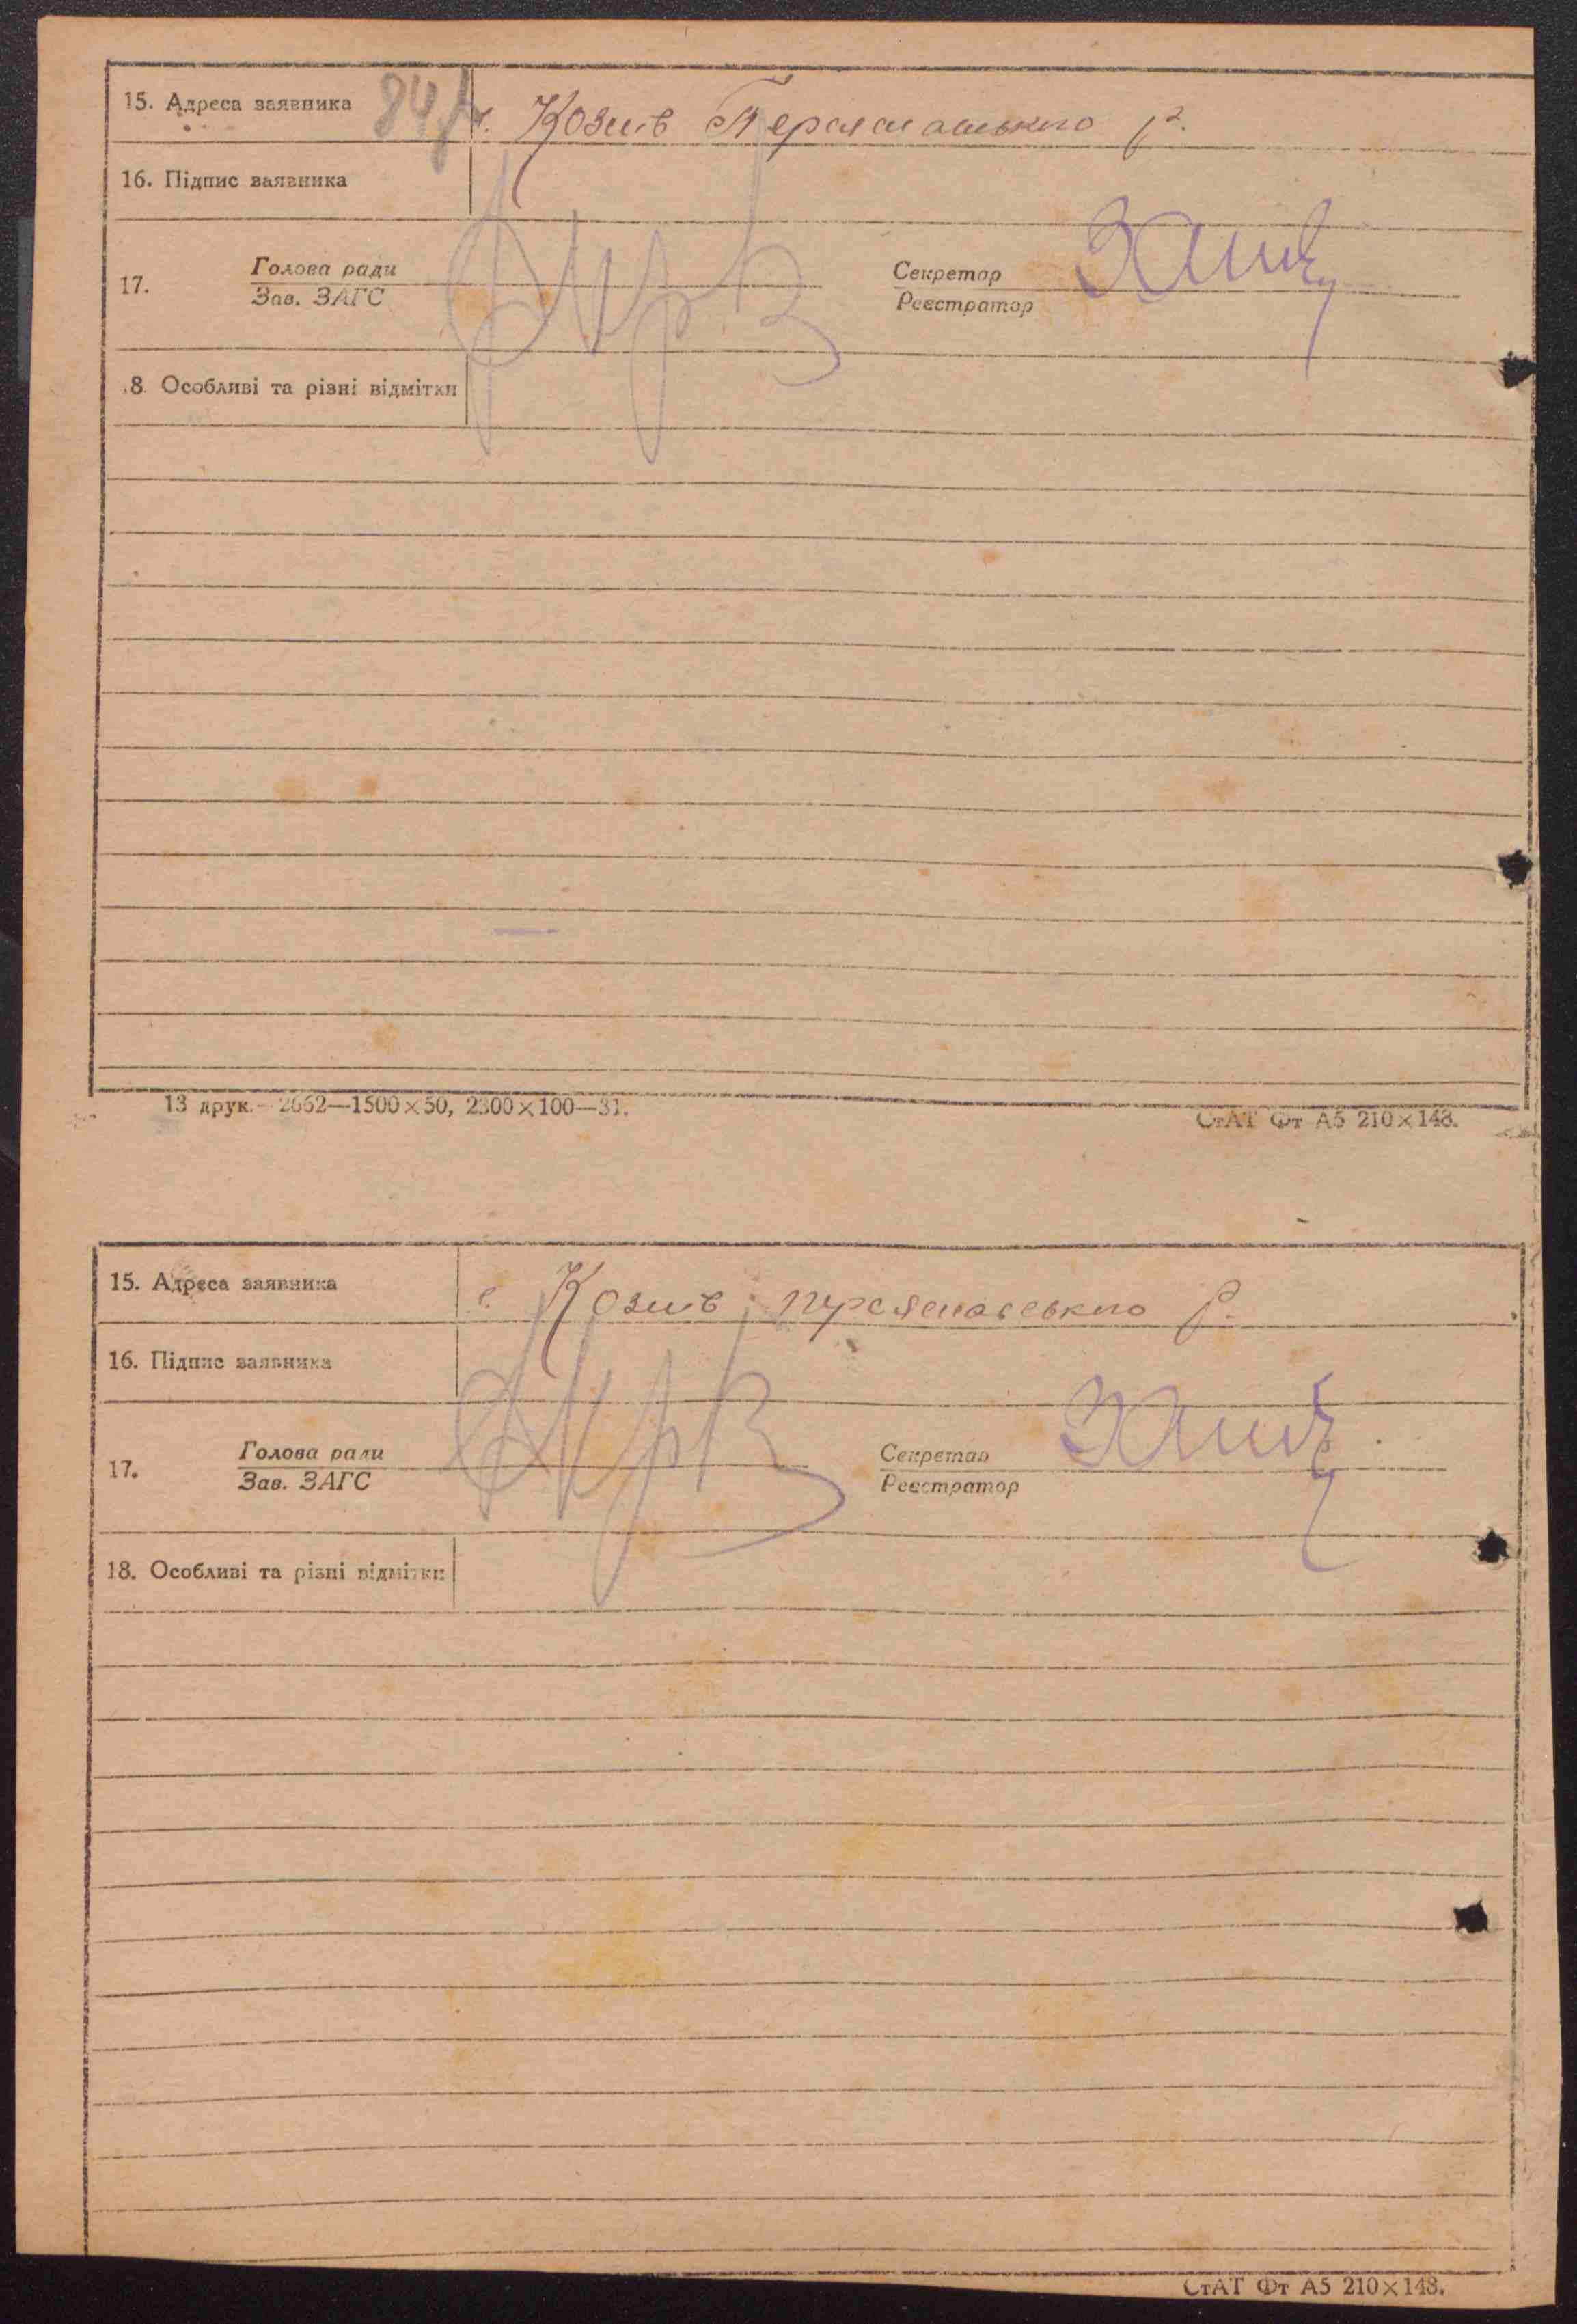 15. Адреса заявника с. Козиїв Переяславського р.
16. Підпис заявника
17. Голова ради Секретар
Зав. ЗАГС Реєстратор
18. Особливі та різні відмітки
13 друк.—2662—1500×50, 2300×100—31.
СтАТ Фт А5 210×148.
15. Адреса заявника с. Козиїв
16. Підпис заявника
17. Голова ради Секретар
Зав. ЗАГС Реєстратор
18. Особливі та різні відмітки
СтАТ Фт А5 210×148.